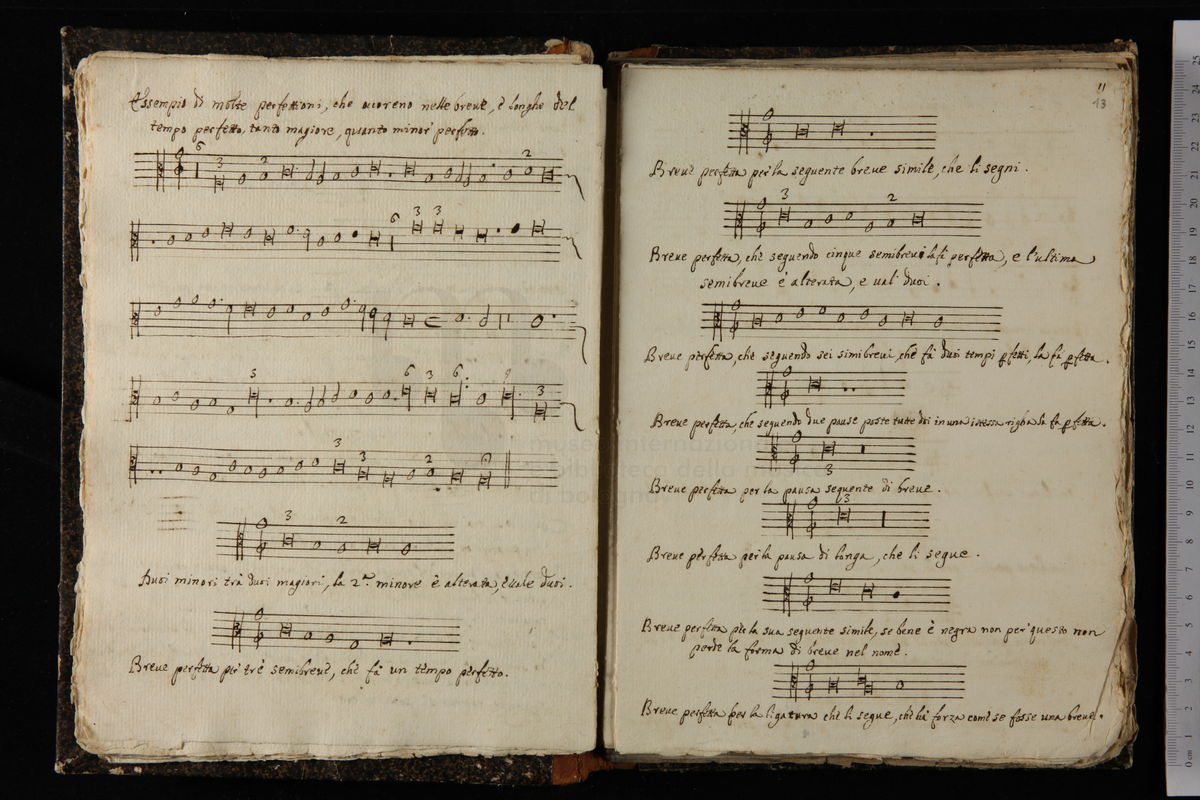 Essempio di molte perfettioni, che ocoreno nelle breve, è longhe del
tempo perfetto, tanto magiore, quanto minor perfetto.
6 3 2 2
6 3 3
3 6 3 6 9 3
3 3 2
3 2
Duoi minori trà duoi magiori, la 2.a minore è alterata, è uale duoi.
Breve perfetta per trè semibreve, chè fà un tempo perfetto.
11
13
Breve perfetta per la sequente breve simile, che li segni.
3 2
Breve perfetta, chè seguendo cinque semibrevi la fà perfetta, e l'ultima
semibreve è alterata, e ual duoi.
Breve perfetta, chè seguendo sei simibrevi, chè fà duoi tempi pfetti, la fà pfetta.
Breve perfetta, chè seguendo due pause poste tutte doi in una istessa righa la fà pfetta.
3
Breve perfetta per la pausa sequente di breve.
3
Breve perfetta per la pausa di longa, che li segue.
Breve perfetta per la sua sequente simile, se bene è negra non per questo non
perde la forma di breve nel nome.
Breve perfetta per la ligatura chè li segue, chè hà forza come se fosse una breve.
museo internazionale
e biblioteca della musica
di bologna
0 cm 1 2 3 4 5 6 7 8 9 10 11 12 13 14 15 16 17 18 19 20 21 22 23 24 25